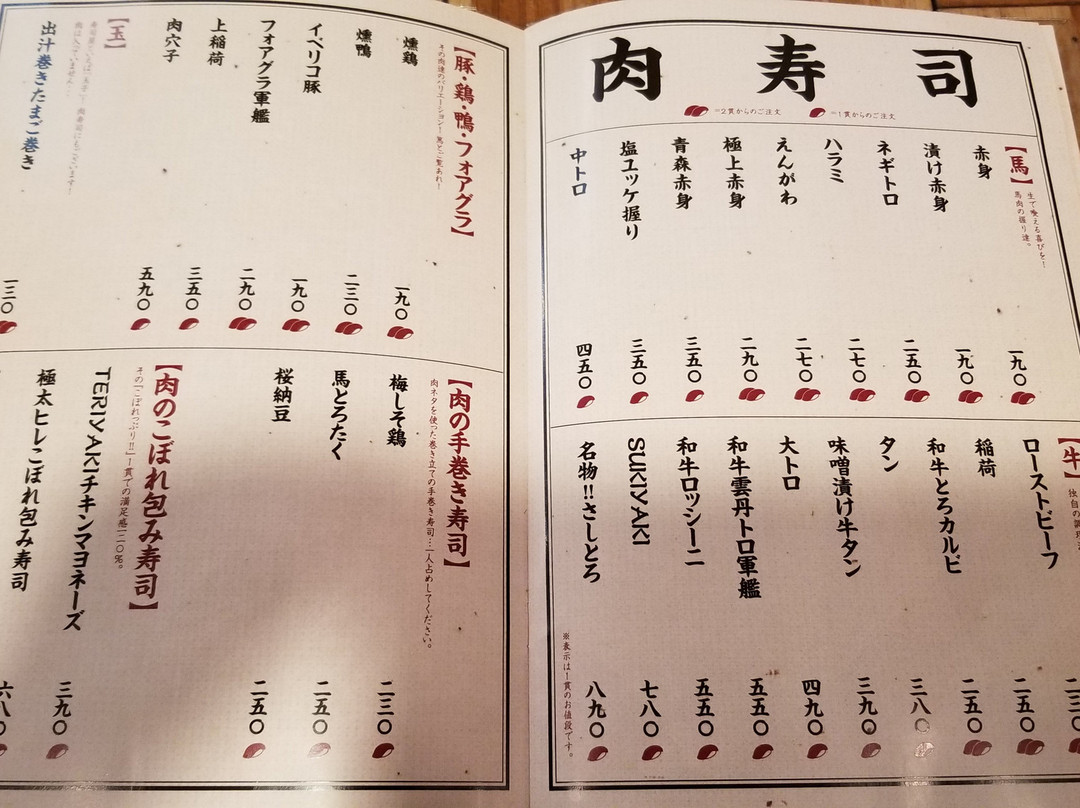 肉寿司
=2貫からのご注文
=1貫からのご注文
【馬】
生で喰える喜びを!
馬肉の握り達。
赤身
一九〇
漬け赤身
一九〇
ネギトロ
二五〇
ハラミ
二七〇
えんがわ
二七〇
極上赤身
二九〇
青森赤身
三五〇
塩ユッケ握り
三五〇
中トロ
四五〇
【牛】
ローストビーフ
二三〇
稲荷
二五〇
和牛とろカルビ
二五〇
タン
三八〇
味噌漬け牛タン
三九〇
大トロ
四九〇
和牛雲丹トロ軍艦
五五〇
和牛ロッシーニ
五五〇
SUKIYAKI
七八〇
名物!!さしとろ
八九〇
※表示は1貫のお値段です。
【豚・鶏・鴨・フォアグラ】
その肉達のバリエーション!馬とご覧あれ!
燻鶏
一九〇
燻鴨
二三〇
イベリコ豚
一九〇
フォアグラ軍艦
二九〇
上稲荷
三五〇
肉穴子
五九〇
【玉】
出汁巻きたまご巻き
一三〇
【肉の手巻き寿司】
肉ネタを使った巻き立ての手巻き寿司…一人占めしてください。
梅しそ鶏
二三〇
馬とろたく
二五〇
桜納豆
二五〇
【肉のこぼれ包み寿司】
その「こぼれっぷり!!」1貫での満足感一二〇%。
TERIYAKIチキンマヨネーズ
三九〇
極太ヒレこぼれ包み寿司
六八〇